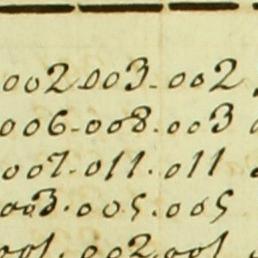 002.003.002
006.008.003
007.011.011
003.005.005
001.002.001